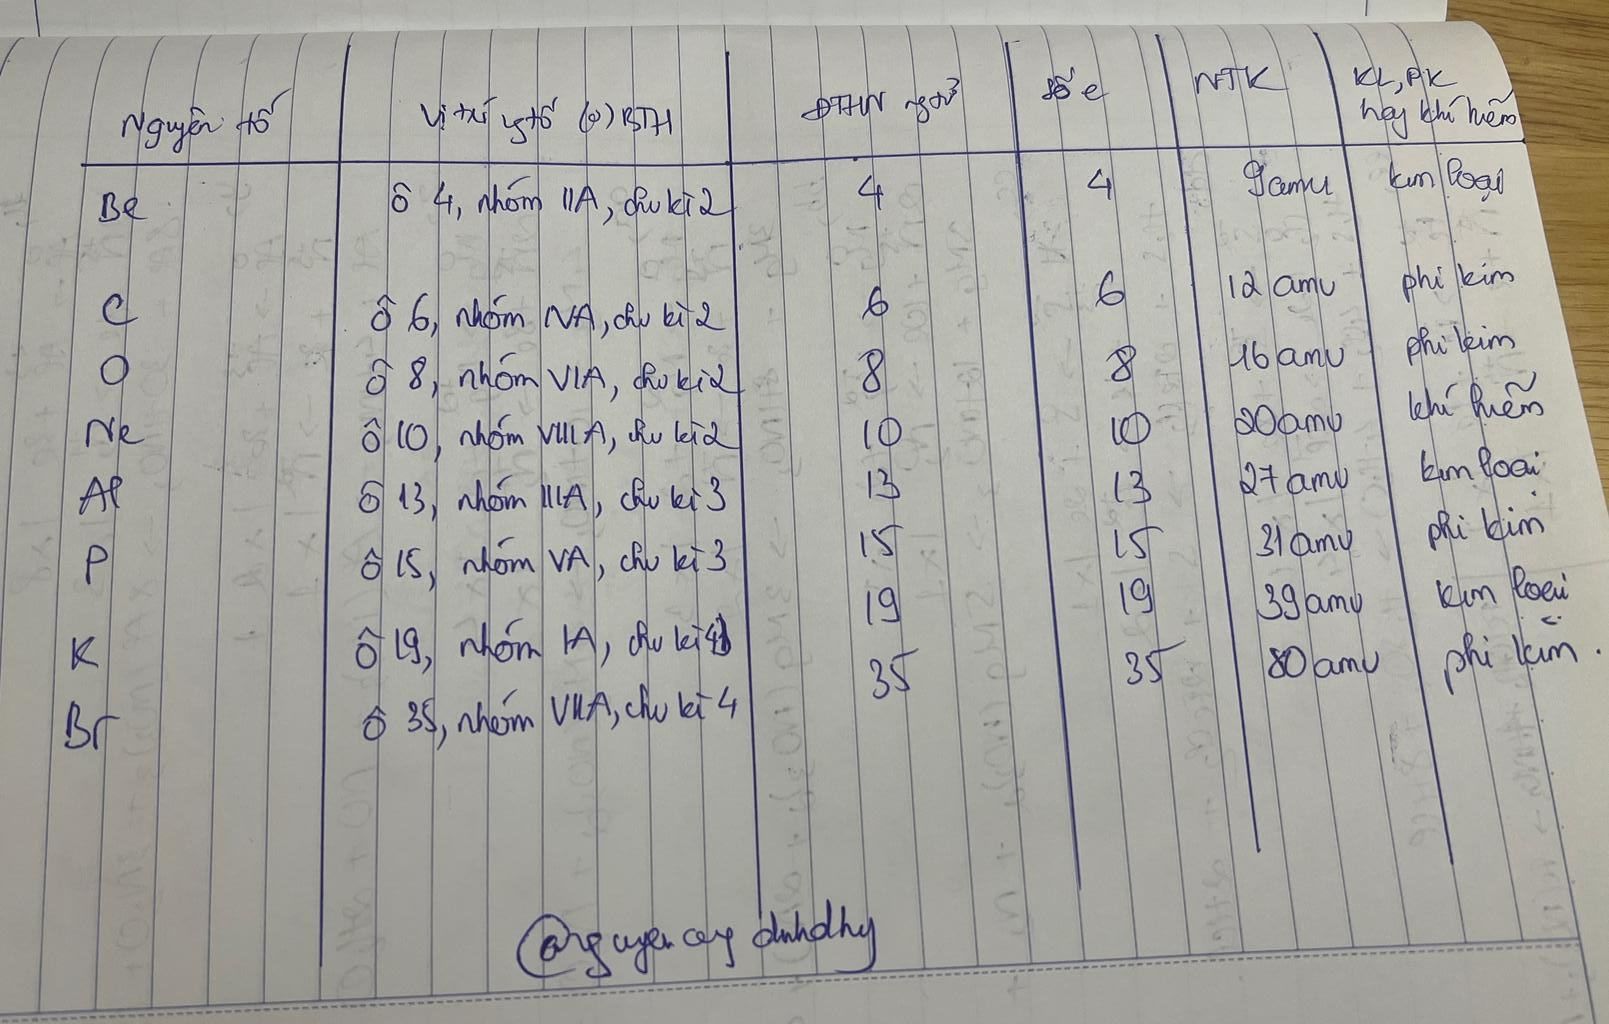 Nguyên tố Vị trí ngtố (ở) BTH ĐTHN ngtử số e NTK KL, PK hay khí hiếm
Be ô 4, nhóm IIA, chu kì 2 4 4 9 amu kim loại
C ô 6, nhóm IVA, chu kì 2 6 6 12 amu phi kim
O ô 8, nhóm VIA, chu kì 2 8 8 16 amu phi kim
Ne ô 10, nhóm VIIIA, chu kì 2 10 10 20 amu khí hiếm
Al ô 13, nhóm IIIA, chu kì 3 13 13 27 amu kim loại
P ô 15, nhóm VA, chu kì 3 15 15 31 amu phi kim
K ô 19, nhóm IA, chu kì 4 19 19 39 amu kim loại
Br ô 35, nhóm VIIA, chu kì 4 35 35 80 amu phi kim.